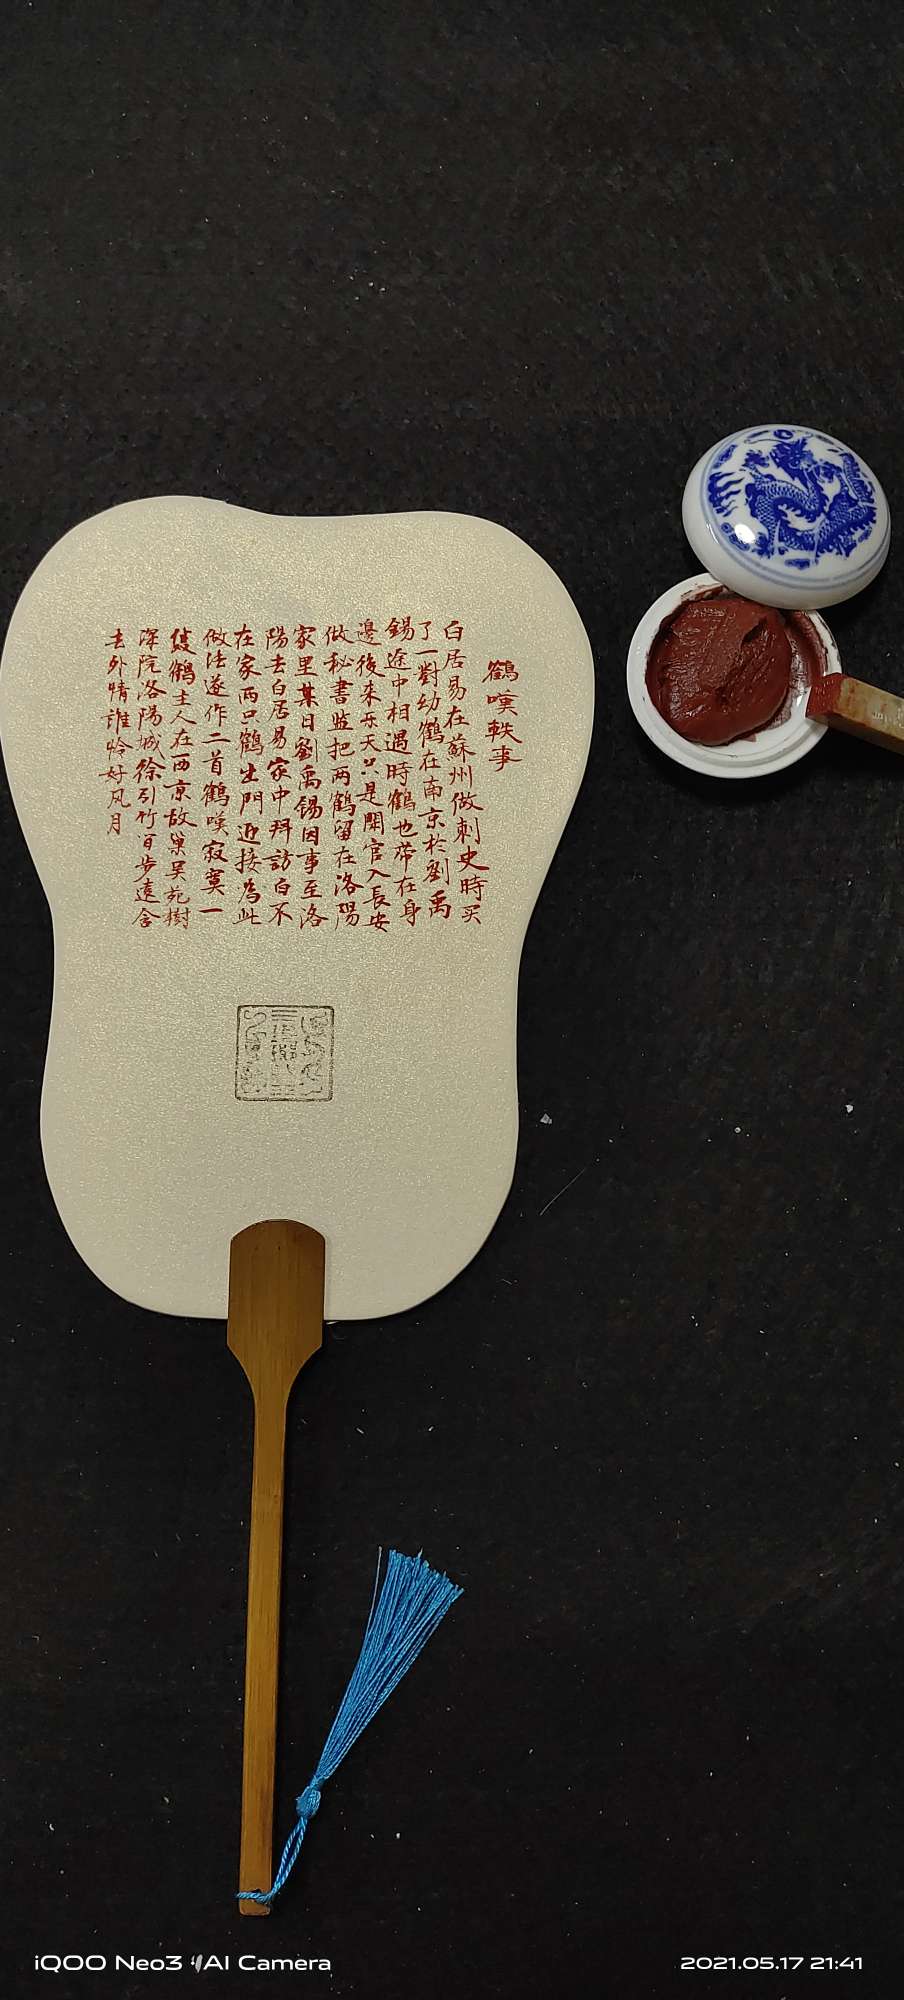 鶴嘆軼事
白居易在蘇州做刺史時买
了一對幼鶴在南京於劉禹
錫途中相遇時鶴也带在身
邊後來乐天只是閒官入長安
做秘書监把两鶴留在洛陽
家里某日劉禹锡因事至洛
陽去白居易家中拜訪白不
在家两只鶴出門迎接為此
做法遂作二首鶴嘆寂寞一
雙鶴主人在西京故巢吴苑樹
深院洛陽城徐引竹间步遠含
云外情誰怜好风月
iQOO Neo3 AI Camera
2021.05.17 21:41